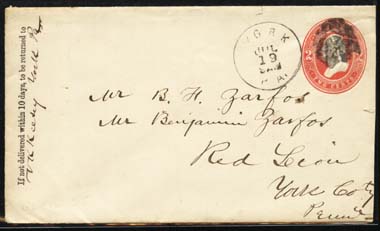 If not delivered within 10 days, to be returned to
York Pa
YORK
JUL
19
PA.
TWO CENTS
Mr B. H. Zarfos
Mr Benjamin Zarfos
Red Lion
York Co'ty
Penn'a